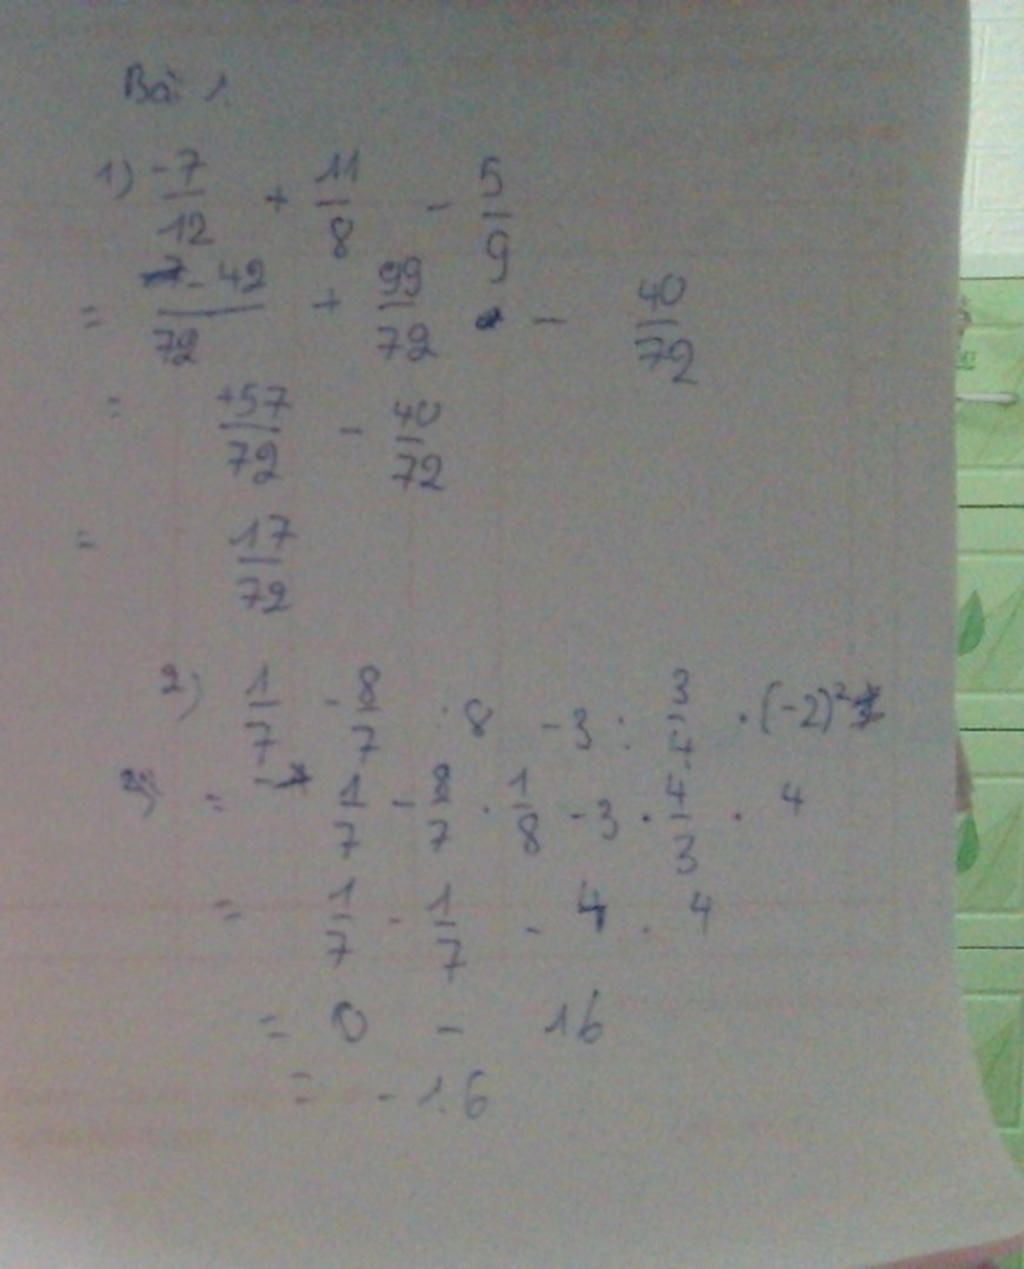 Bài 1
1) -7/12 + 11/8 - 5/9
= -42/72 + 99/72 - 40/72
= +57/72 - 40/72
= 17/72
2) 1/7 - 8/7 : 8 - 3 : 3/4 . (-2)²
= 1/7 - 8/7 . 1/8 - 3 . 4/3 . 4
= 1/7 - 1/7 - 4 . 4
= 0 - 16
= -16